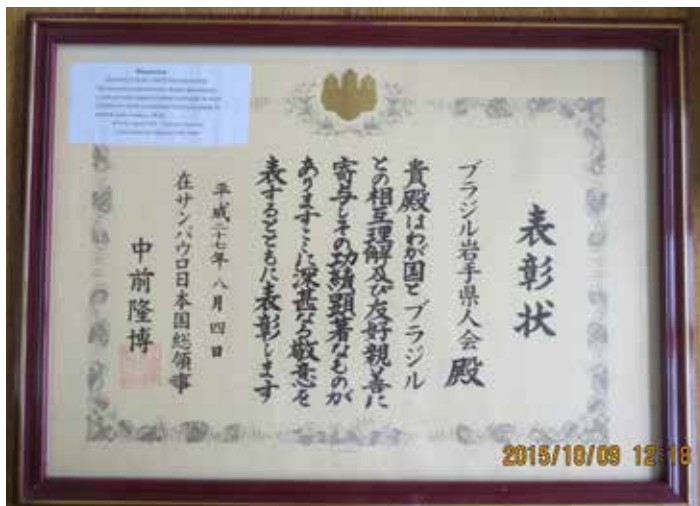 表彰状
ブラジル岩手県人会殿
貴殿はわが国とブラジル
との相互理解及び友好親善に
寄与しその功績顕著なものが
ありますここに深甚なる敬意を
表するとともに表彰します
平成二十七年八月四日
在サンパウロ日本国総領事
中前隆博
2015/10/09 12:18